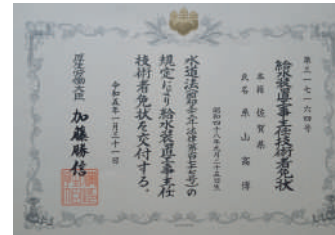 第三一七一六四号
給水装置工事主任技術者免状
本籍 佐賀県
氏名 糸山富博
昭和四十八年九月二十五日生
水道法(昭和三十二年法律第百七十七号)の
規定により給水装置工事主任
技術者免状を交付する。
令和五年一月三十一日
厚生労働大臣 加藤勝信